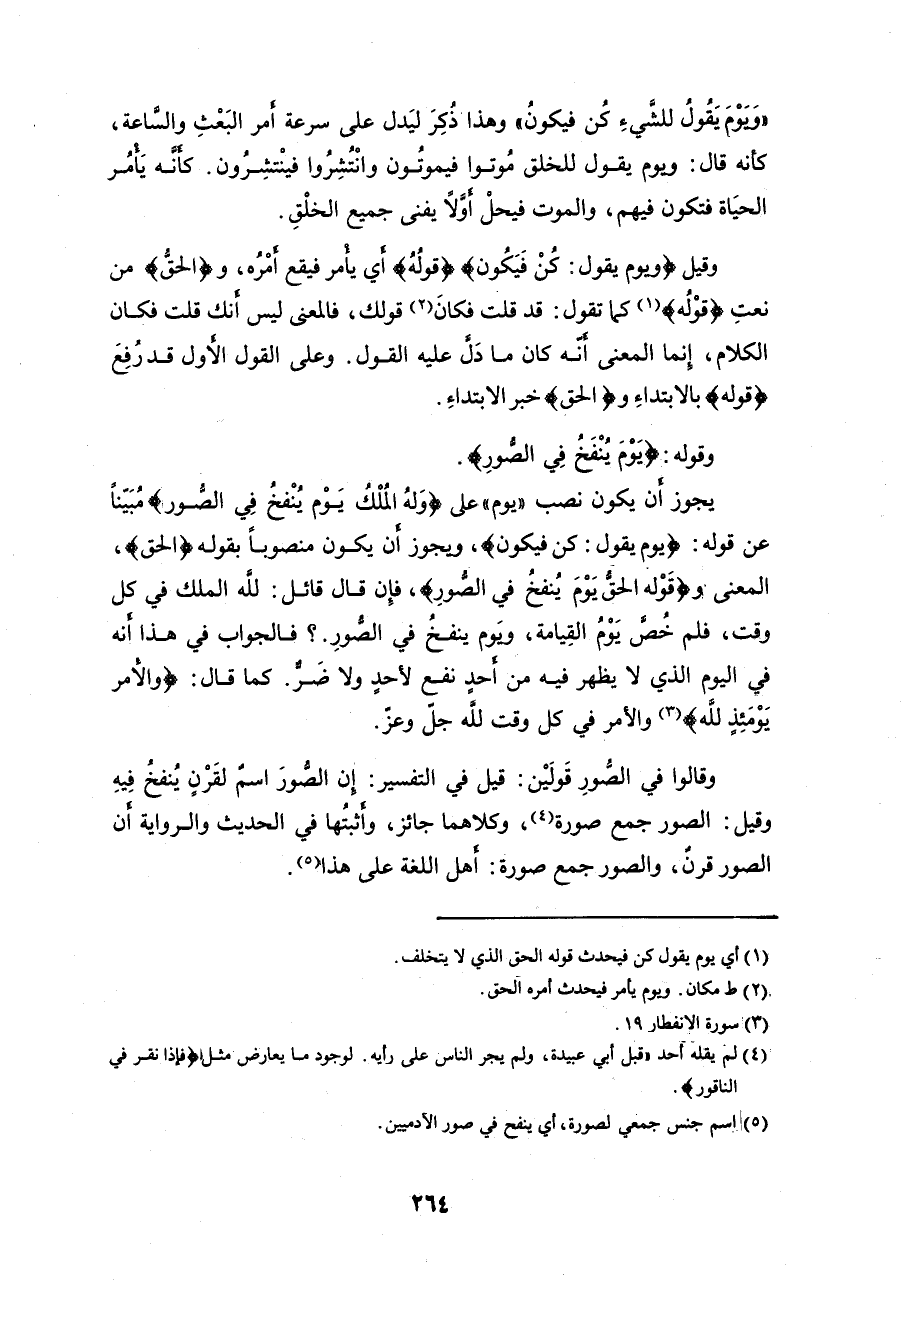 «وَيَوْمَ يَقُولُ للشَّيءِ كُن فيكونُ» وهذا ذُكِرَ ليَدل على سرعة أَمر البَعْثِ والسَّاعة،
كأنه قال: ويوم يقـول للخلق مُوتـوا فيموتُـون وانْتُشِرُوا فينْتشِـرُون. كأَنَّـه يَأْمُـر
الحيَاة فتكون فيهم، والموت فيحلْ أَوَّلاً يفنى جميع الخلْقِ.
وقيل ﴿ويوم يقول: كُنْ فَيَكُون﴾ ﴿قولُهُ﴾ أَي يأْمر فيقع أَمْرُه، و﴿الحَقُّ﴾ من
نعتِ ﴿قوْلُه﴾(١) كما تقول: قد قلت فكانَ(٢) قولك، فالمعنى ليس أَنك قلت فكـان
الكلام، إنما المعنى أَنّـه كان مـا دَلَّ عليه القـول. وعلى القول الأَول قـد رُفِعَ
﴿قوله﴾ بالابتداءِ و﴿الحق﴾ خبر الابتداءِ.
وقوله: ﴿يَوْمَ يُنْفَخُ فِي الصُّورِ﴾.
يجوز أَن يكون نصب «يوم» على ﴿وَلهُ المُلْكُ يَـوْم يُنْفخُ فِي الصُّـور﴾ مُبَيّناً
عن قوله: ﴿يوم يقول: كن فيكون﴾، ويجوز أَن يكـون منصوبـاً بقولـه ﴿الحق﴾،
المعنى و﴿قَوْله الحقُّ يَوْمَ يُنفخُ في الصُّورِ﴾، فإن قـال قائـل: للَّه الملك في كل
وقت، فلم خُصَّ يَوْمُ القِيامة، ويَوم ينفـخُ في الصُّورِ.؟ فـالجواب في هـذا أَنه
في اليوم الذي لا يظهر فيـه من أَحدٍ نفـع لأحدٍ ولا ضَـرٌّ. كما قـال: ﴿والأَمر
يَوْمَئِذٍ للَّه﴾(٣) والأمر في كل وقت للَّه جلّ وعزّ.
وقالوا في الصُّورِ قَولَيْن: قيل في التفسير: إن الصُّورَ اسمٌ لقَرْنٍ يُنفخُ فِيهِ
وقيل: الصور جمع صورة(٤)، وكلاهما جائز، وأَثبتُها في الحديث والـرواية أَن
الصور قرنٌ، والصور جمع صورة: أَهل اللغة على هذا(٥).
(١) أي يوم يقول كن فيحدث قوله الحق الذي لا يتخلف.
(٢) ط مكان. ويوم يأمر فيحدث أمره الحق.
(٣) سورة الانفطار ١٩.
(٤) لم يقله أحد «قبل أبي عبيدة، ولم يجر الناس على رأيه. لوجود مـا يعارض مثـل ﴿فإذا نقـر في
الناقور﴾.
(٥) اسم جنس جمعي لصورة، أي ينفح في صور الآدميين.
٢٦٤